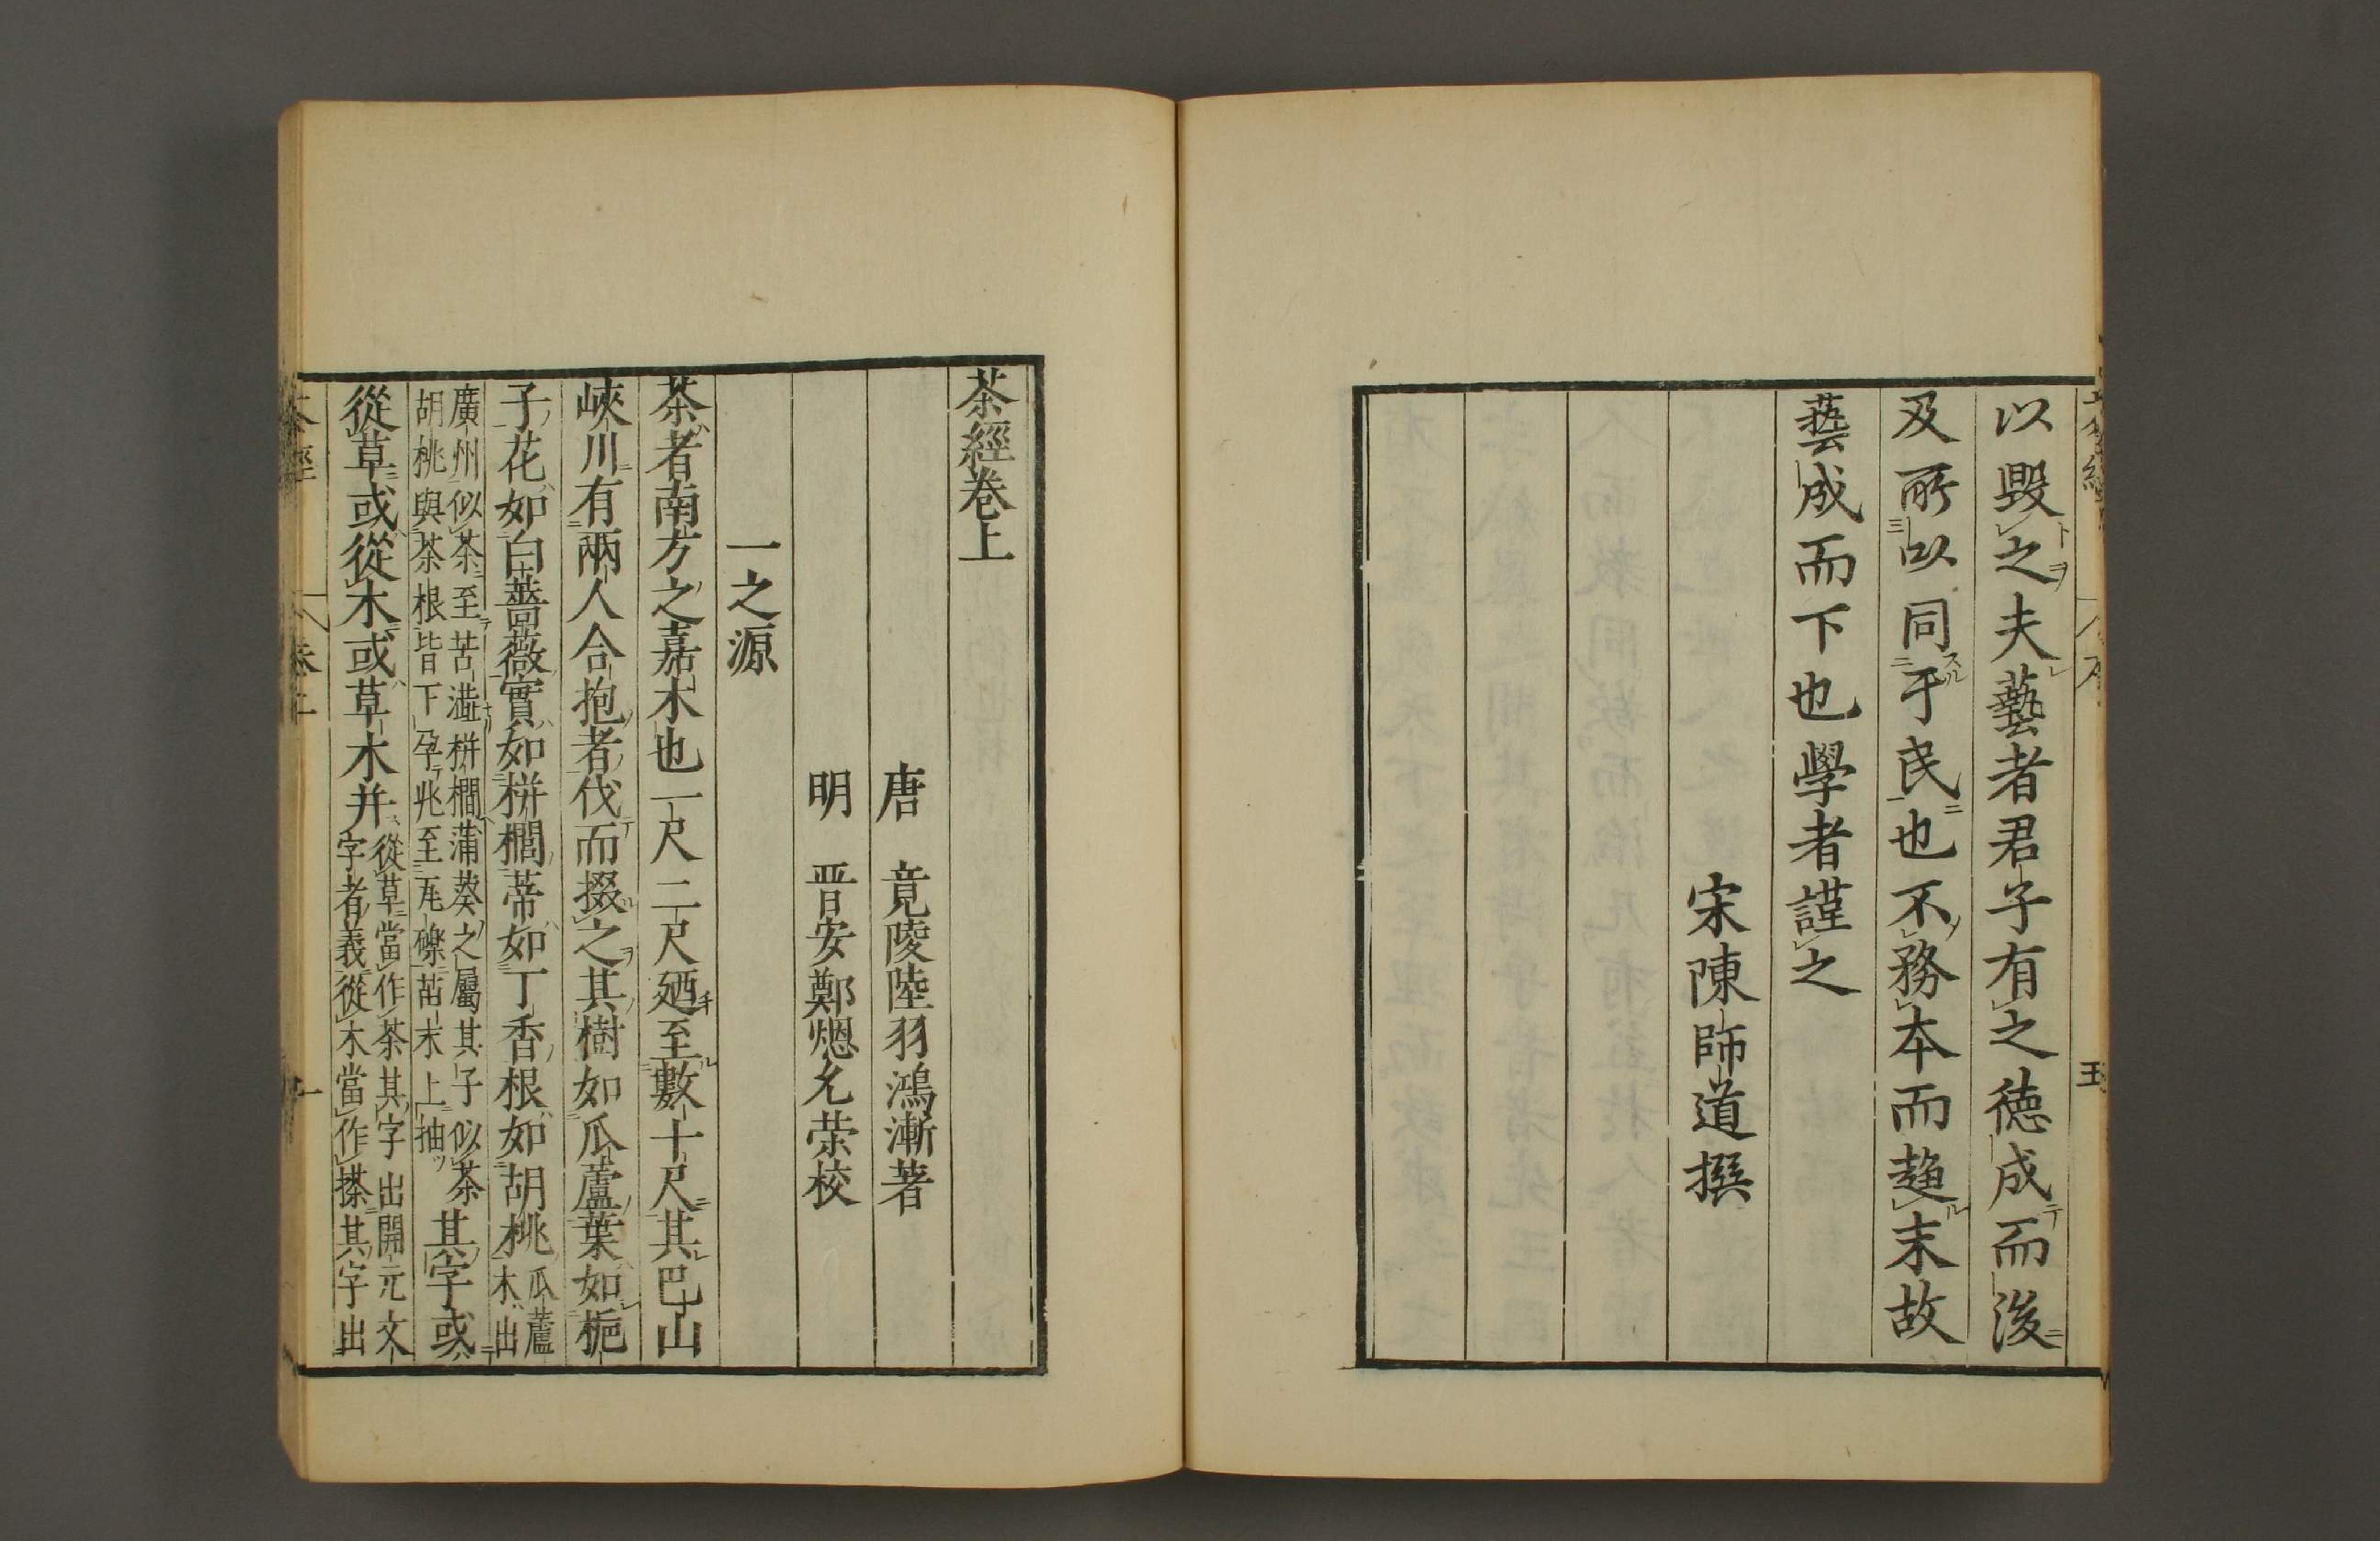 以毀之夫藝者君子有之德成而後
及所以同于民也不務本而趨末故
藝成而下也學者謹之
宋陳師道撰
茶經卷上
唐　竟陵陸羽鴻漸著
明　晋安鄭熜允荣校
一之源
茶者南方之嘉木也一尺二尺廼至數十尺其巴山
峽川有兩人合抱者伐而掇之其樹如瓜蘆葉如梔
子花如白薔薇實如栟櫚蒂如丁香根如胡桃瓜蘆木出
廣州似茶至苦澁栟櫚蒲葵之屬其子似茶
胡桃與茶根皆下孕兆至瓦礫苗木上抽其字或
從草或從木或草木并從草當作茶其字出開元文
字者義從木當作搽其字出